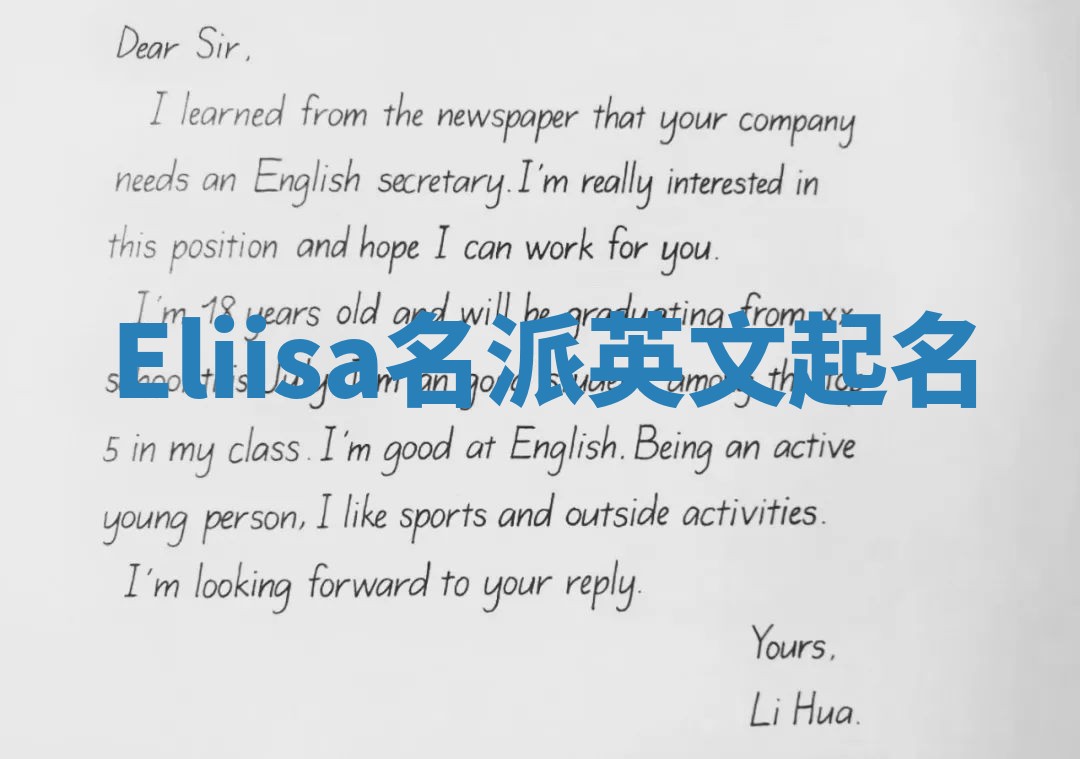 Dear Sir,
I learned from the newspaper that your company
needs an English secretary. I'm really interested in
this position and hope I can work for you.
I'm 18 years old and will be graduating from xx
Eliisa名派英文起名
school this July. I'm an good student among the top
5 in my class. I'm good at English. Being an active
young person, I like sports and outside activities.
I'm looking forward to your reply.
Yours,
Li Hua.